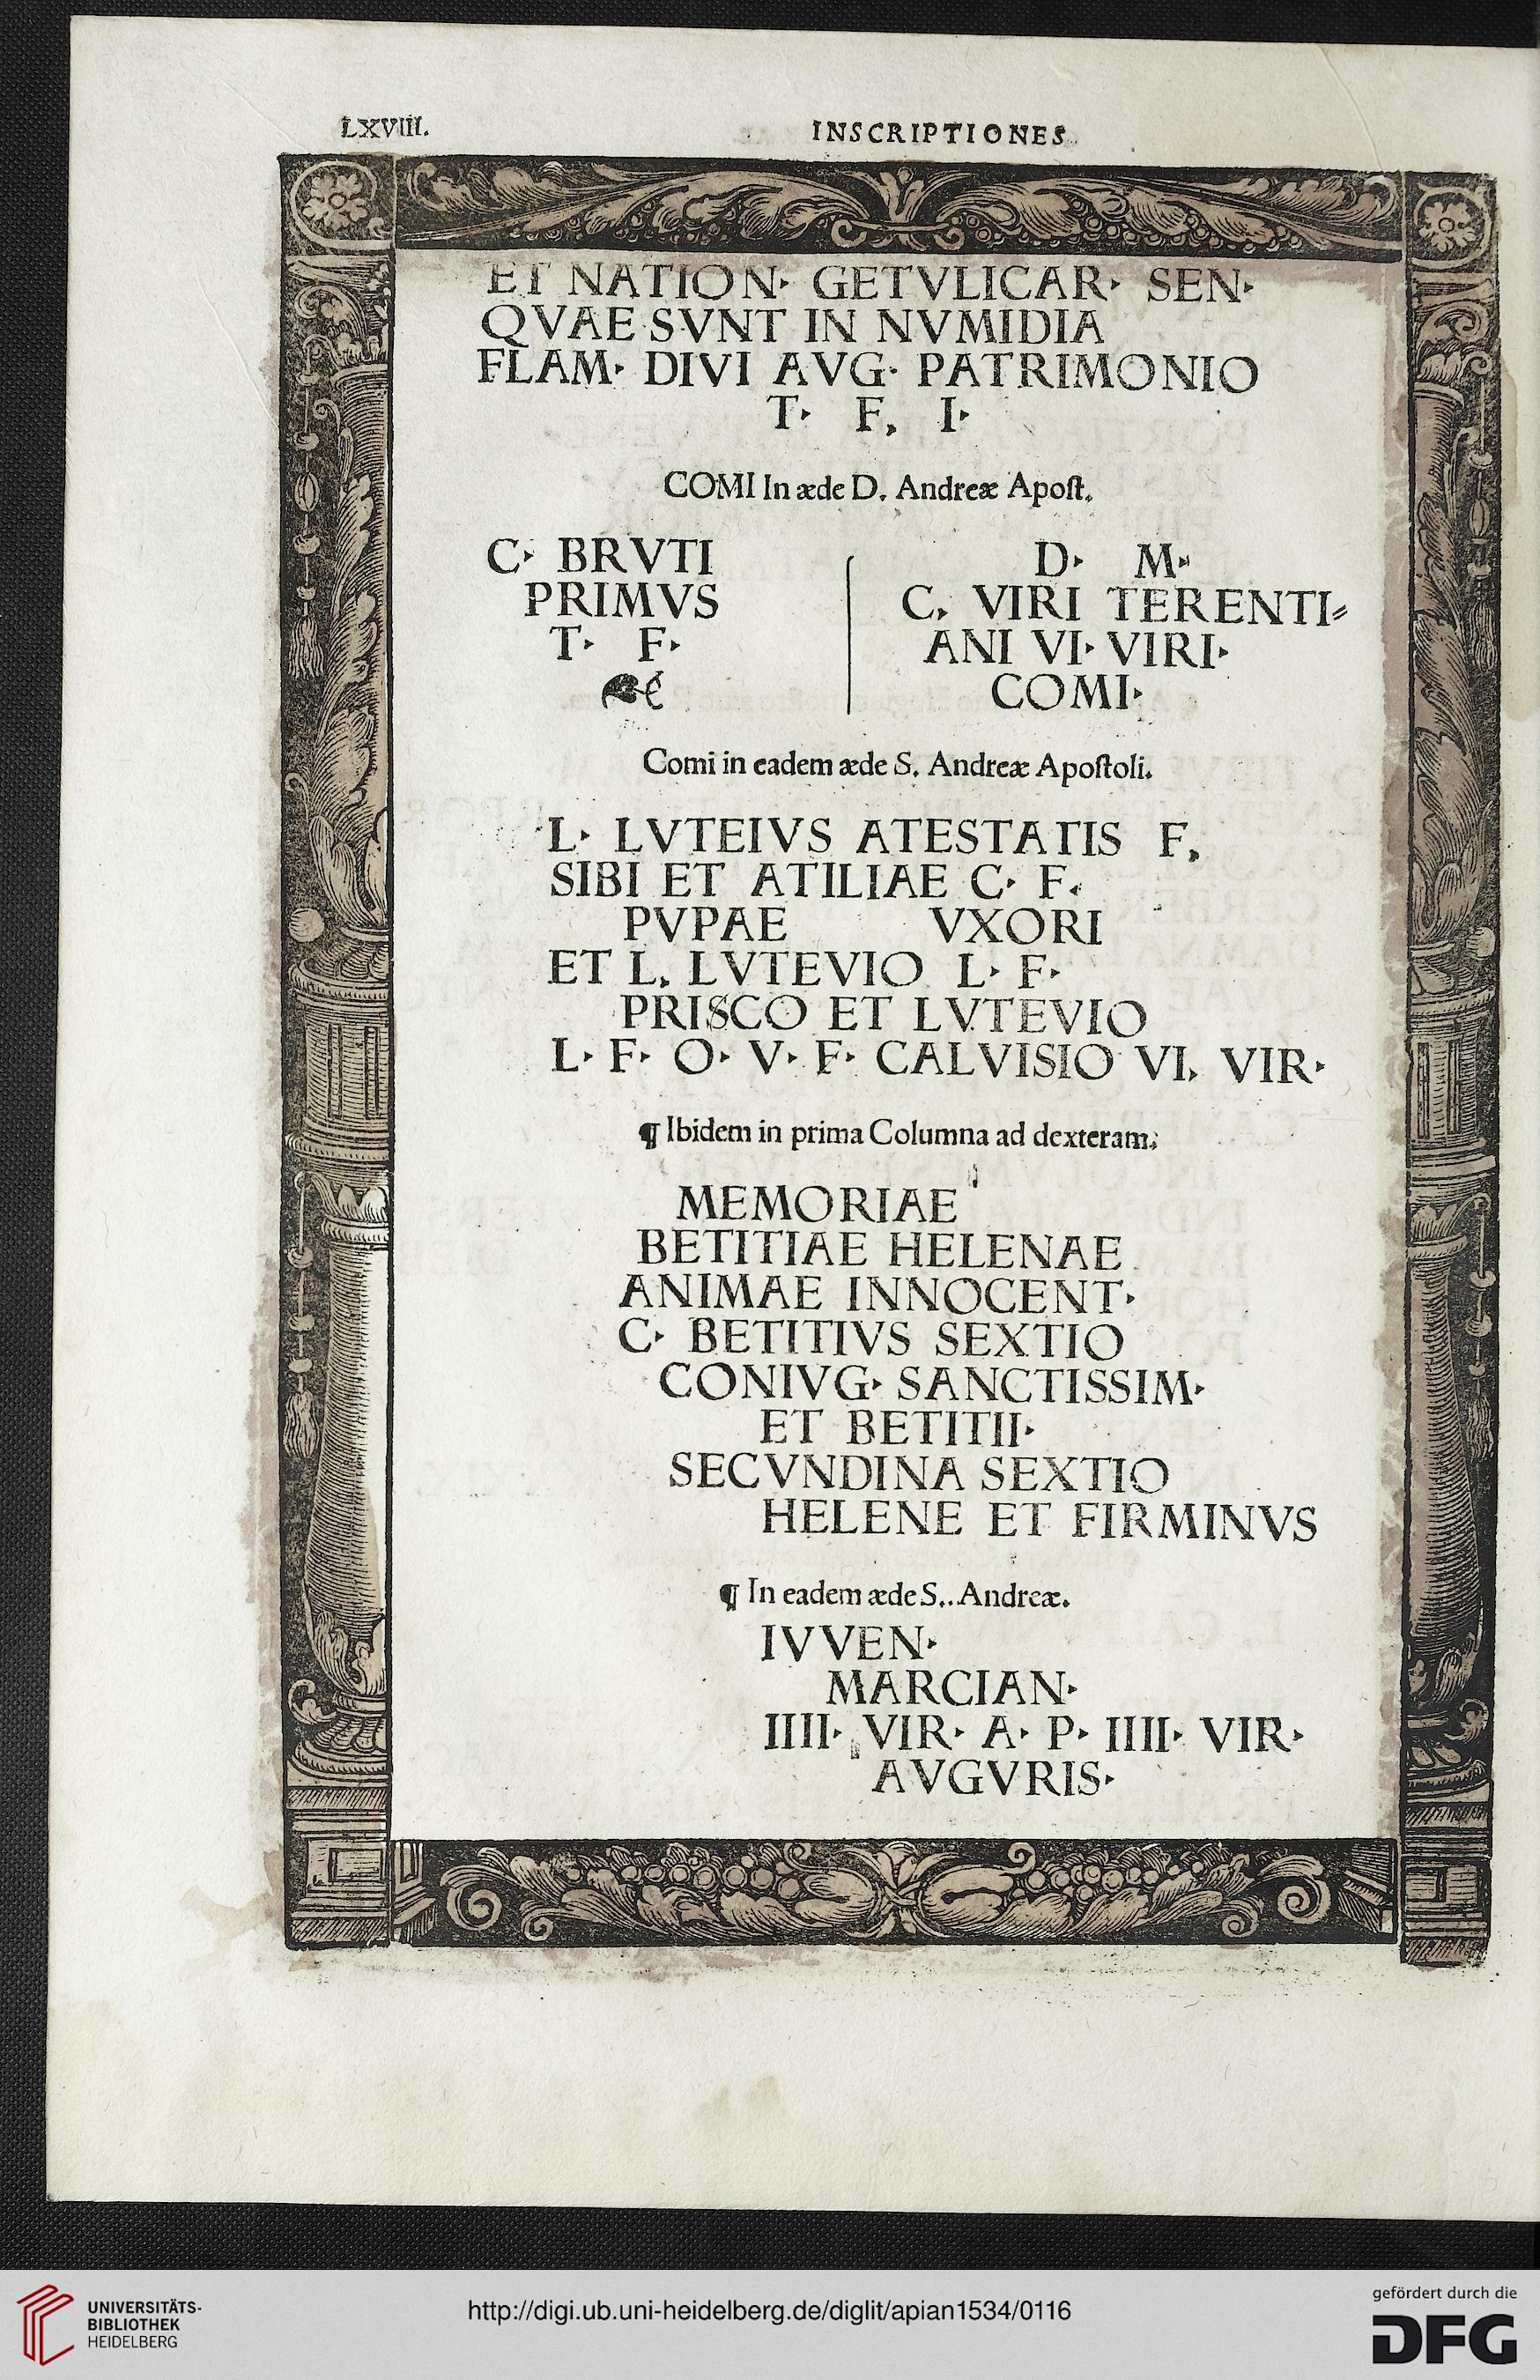 LXVIII.
INSCRIPTIONES
ET NATION· GETVLICAR· SEN·
QVAE SVNT IN NVMIDIA
FLAM· DIVI AVG· PATRIMONIO
T· F, I·
COMI In æde D. Andreæ Apost.
C· BRVTI
PRIMVS
T· F·
D· M·
C, VIRI TERENTI⸗
ANI VI· VIRI·
COMI·
Comi in eadem æde S. Andreæ Apostoli.
L· LVTEIVS ATESTATIS F,
SIBI ET ATILIAE C· F.
PVPAE VXORI
ET L, LVTEVIO L· F·
PRISCO ET LVTEVIO
L· F· O· V· F· CALVISIO VI, VIR·
¶ Ibidem in prima Columna ad dexteram.
MEMORIAE
BETITIAE HELENAE
ANIMAE INNOCENT·
C· BETITIVS SEXTIO
CONIVG· SANCTISSIM·
ET BETITII·
SECVNDINA SEXTIO
HELENE ET FIRMINVS
¶ In eadem æde S..Andreæ.
IVVEN·
MARCIAN·
IIII· VIR· A· P· IIII· VIR·
AVGVRIS·
UNIVERSITÄTS-
BIBLIOTHEK
HEIDELBERG
http://digi.ub.uni-heidelberg.de/diglit/apian1534/0116
gefördert durch die
DFG